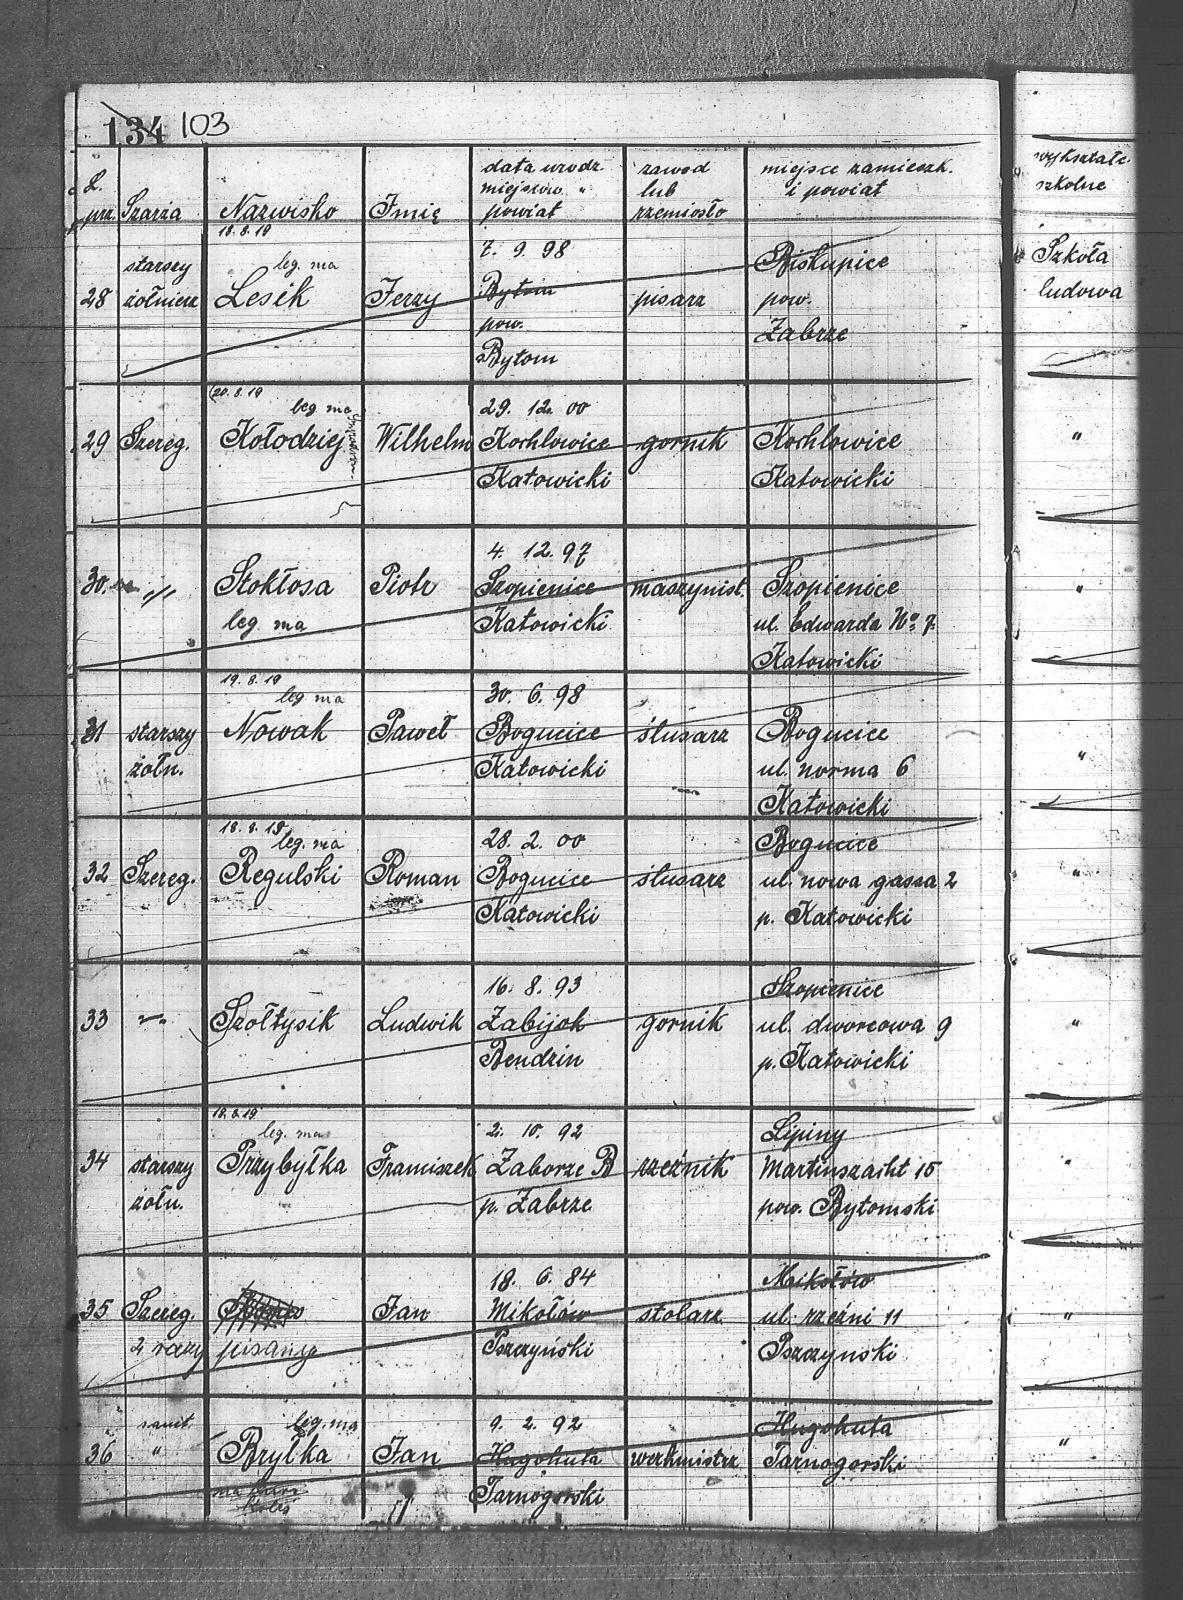 134 103
L. prz. Szarża Nazwisko Imię data urodz. miejscow. " powiat zawod lub rzemiosło miejsce zamieszk. i powiat wykształc. szkolne
18.8.19
leg. ma
28 starszy żołnierz Lesik Jerzy 7. 9. 98 Bytom pow. Bytom pisarz Biskupice pow. Zabrze Szkoła ludowa
20.8.19
leg. ma
29 Szereg. Kołodziej Wilhelm 29. 12. 00 Kochlowice Katowicki gornik Kochlowice Katowicki "
30. -//- Stokłosa Piotr 4. 12. 97 Szopienice Katowicki maszynist. Szopienice ul. Edwarda No. 7. Katowicki "
leg ma
19.8.19
leg ma
31 starszy żołn. Nowak Paweł 30. 6. 98 Bogucice Katowicki ślusarz Bogucice ul. norma 6 Katowicki "
18.8.19
leg. ma
32 Szereg. Regulski Roman 28. 2. 00 Bogucice Katowicki ślusarz Bogucice ul. nowa gassa 2 p. Katowicki "
33 -"- Szołtysik Ludwik 16. 8. 93 Zabijok Bendzin gornik Szopienice ul. dworcowa 9 p. Katowicki "
18.8.19
leg. ma
34 starszy żołn. Przybyłka Franciszek 2. 10. 92 Zaborze B p. Zabrze rzeźnik Lipiny Martinszacht 15 pow. Bytomski "
35 Szereg. Jan 18. 6. 84 Mikołów Pszczyński stolarz Mikołów ul. rzeźni 11 Pszczynski "
2 razy pisany
leg. ma
36 sanit. " Bryłka Jan 9. 2. 92 Hugohuta Tarnogorski werkmistrz Hugohuta Tarnogorski "